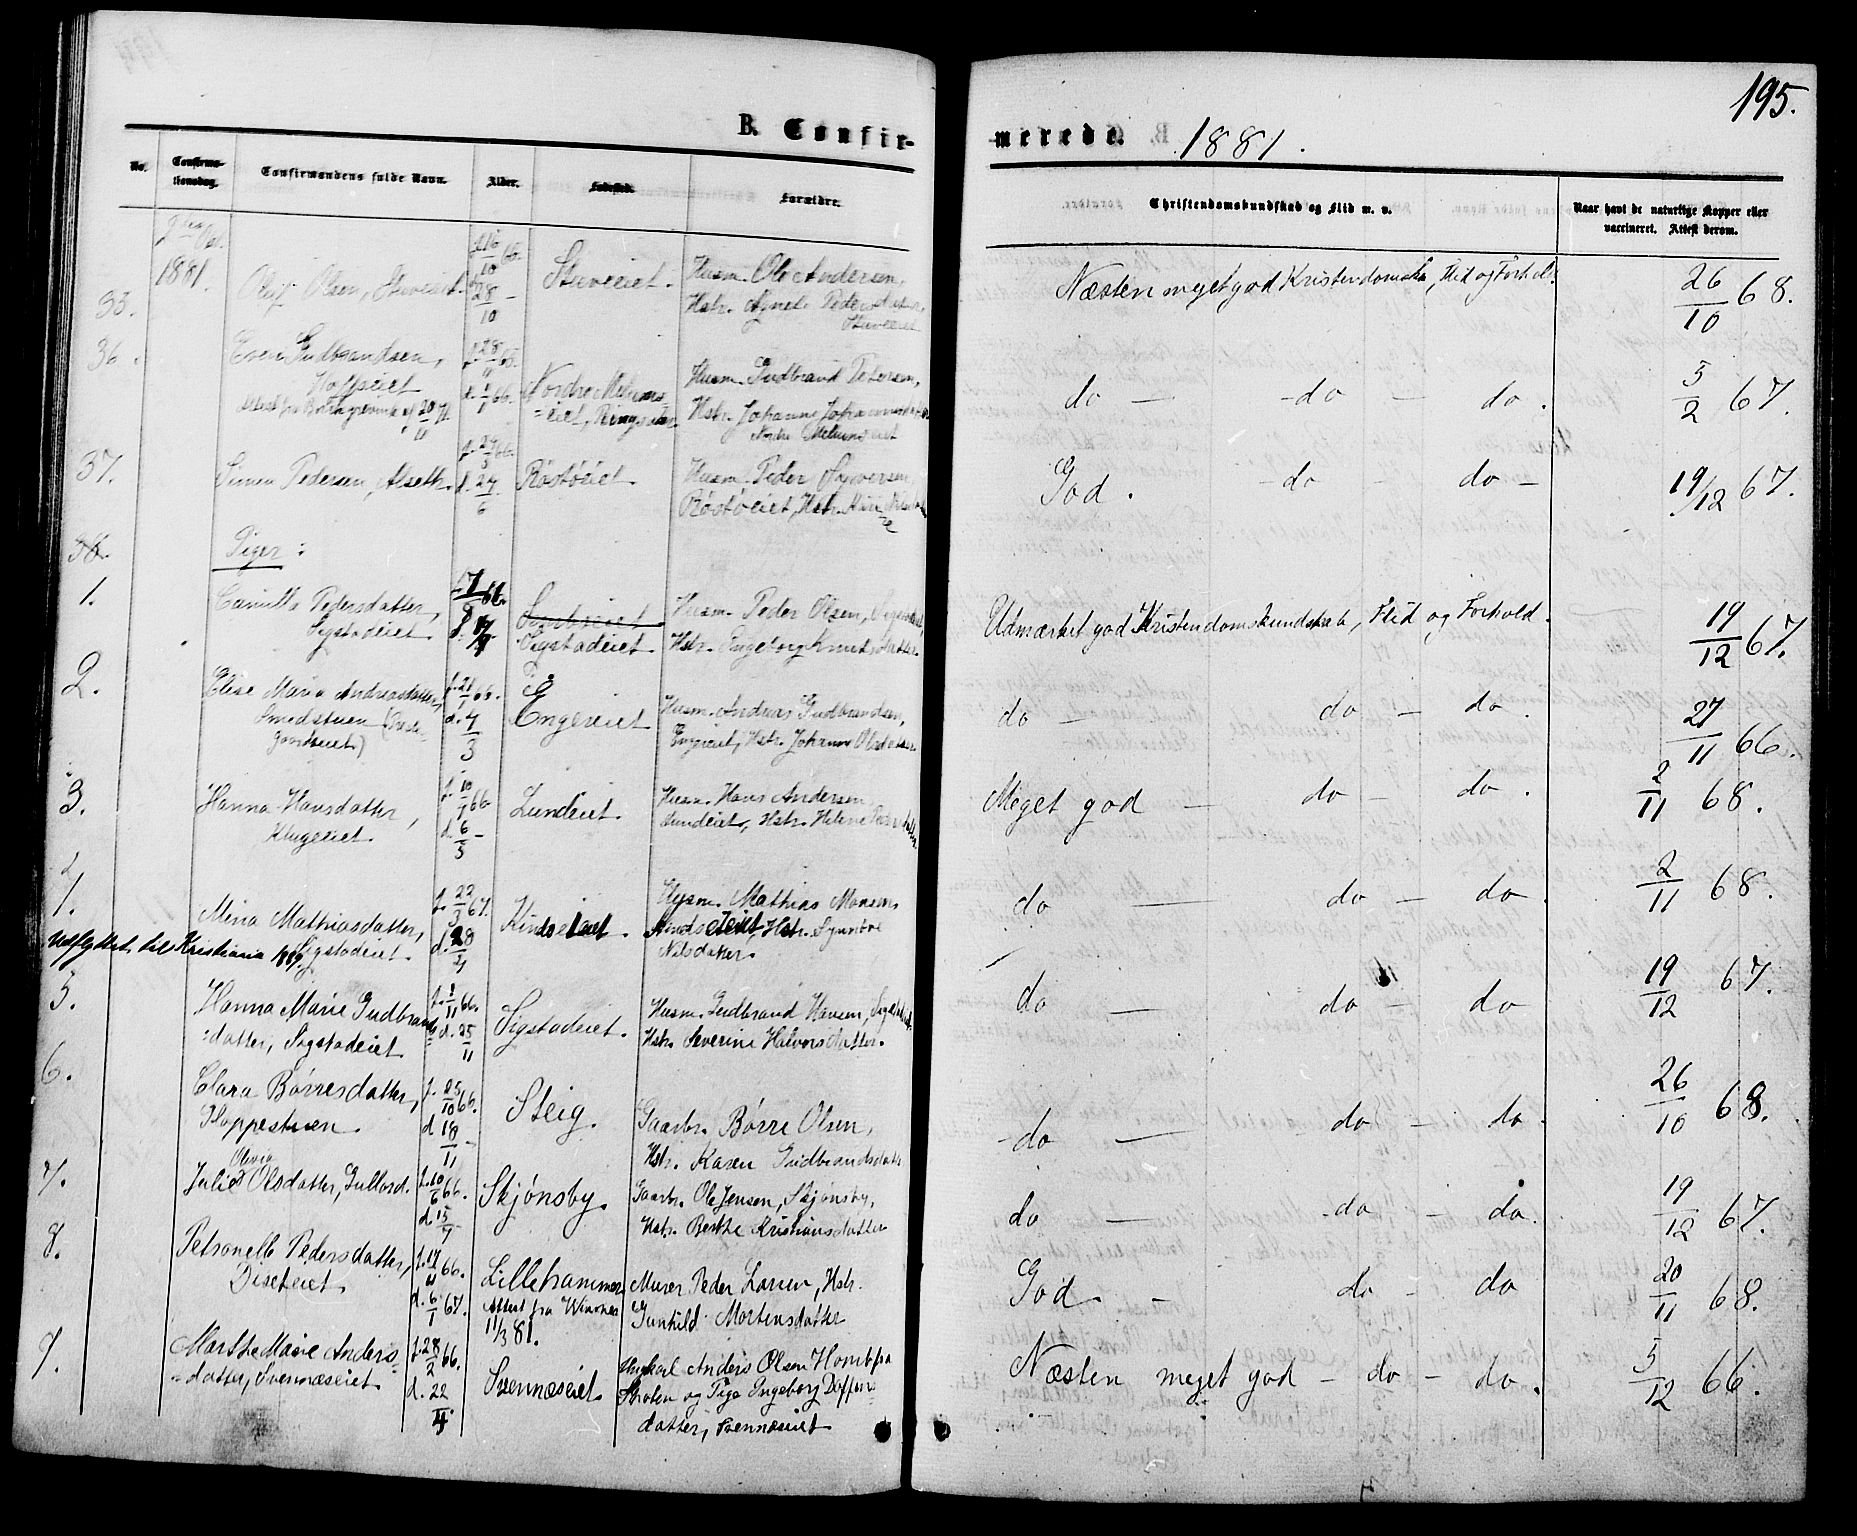 195.
B. Confir-
merede. 1881.
No.
Confirma-
tionsdag.
Confirmandens fulde Navn.
Alder.
Fødested.
Forældre.
Christendomskundskab og Flid m. v.
Naar havt de naturlige Kopper eller
vaccineret. Attest derom.
1881.
35.
Oluf Olsen, Stuveiet.
f. 16/10 66.
d. 28/10 –
Stuveiet.
Husm. Ole Andersen,
Hstr. Agnete Pedersdatter,
Stuveiet
Næsten meget god Kristendomsk., Flid og Forhold.
26/10 68.
36.
Even Gudbrandsen,
Hoffseiet
Attest fra
d. 1/1 66.
Nordre Melums-
=eiet, Ringsaker
Husm. Gudbrand Petersen,
Hstr. Johanne Johannesdatter
Nordre Melumseiet
do – do – do.
5/2 67.
37.
Simen Pedersen, Alseth.
d. 27/6
Røstøeiet.
Husm. Peder Syversen,
Røstøeiet, Hstr.
God. – do – do –
19/12 67.
38.
Piger:
1.
Camilla Pedersdatter,
Sigstadeiet.
Sigstadeiet.
Husm. Peder Olsen,
Hstr. Ingeborg Knutsdatter.
Udmærket god Kristendomskundskab, Flid og Forhold.
19/12 67.
2.
Elise Maria Andreasdatter,
Smedstuen
f. 21/1 66.
d. 4/3
Engeeiet
Husm. Andreas Gudbrandsen,
Engeeiet, Hstr. Johanne Olsdatter
do – do – do.
27/11 66.
3.
Hanna Hansdatter,
Klugeeiet.
f. 10/4 66.
d. 6/5 –
Lundeiet.
Husm. Hans Andersen
Lundeiet, Hstr. Helene Pedersdatter.
Meget god – do – do.
2/11 68.
Mina Mathiasdatter,
Sigstadeiet.
Udflyttet til Kristiania
f. 22/3 67.
d. 28/4
Kindseteiet.
Husm. Mathias Monsen
Kindseteiet, Hstr. Synnøve
Nilsdatter.
do – do – do.
2/11 68.
5.
Hanna Marie Gudbrands-
=datter, Sigstadeiet
f. 1/11 66.
d. 25/11
Sigstadeiet.
Husm. Gudbrand Hansen, Sigstadeiet,
Hstr. Severine Halvorsdatter.
do – do – do
19/12 67.
6.
Clara Børresdatter,
Ploppestuen.
f. 25/10 66.
d. 18/11 –
Steig.
Gaarbr. Børre Olsen,
Hstr. Karen Gudbrandsdatter
do – do – do.
26/10 68.
7.
Olivia
Julie Olsdatter, Gullord.
f. 10/6 66.
d. 15/7
Skjønsby.
Gaarbr. Ole Jensen, Skjønsby,
Hstr. Berthe Kristiansdatter
do – do – do.
19/12 67.
8.
Petronelle Pedersdatter,
Diseteiet.
f. 14/11 66.
d. 6/1 67.
Lillehammer
Attest fra
11/3 81.
Murer Peder Larsen, Hstr.
Gunhild Mortensdatter
God. – do – do
20/11 68.
9.
Marthe Marie Anders-
=datter, Svennæseiet
f. 28/2 66.
d. 22/4.
Svennæseiet.
Ungkarl Anders Olsen Homb fra
Toten og Pige Ingeborg
datter, Svennæseiet
Næsten meget god – do – do.
5/12 66.